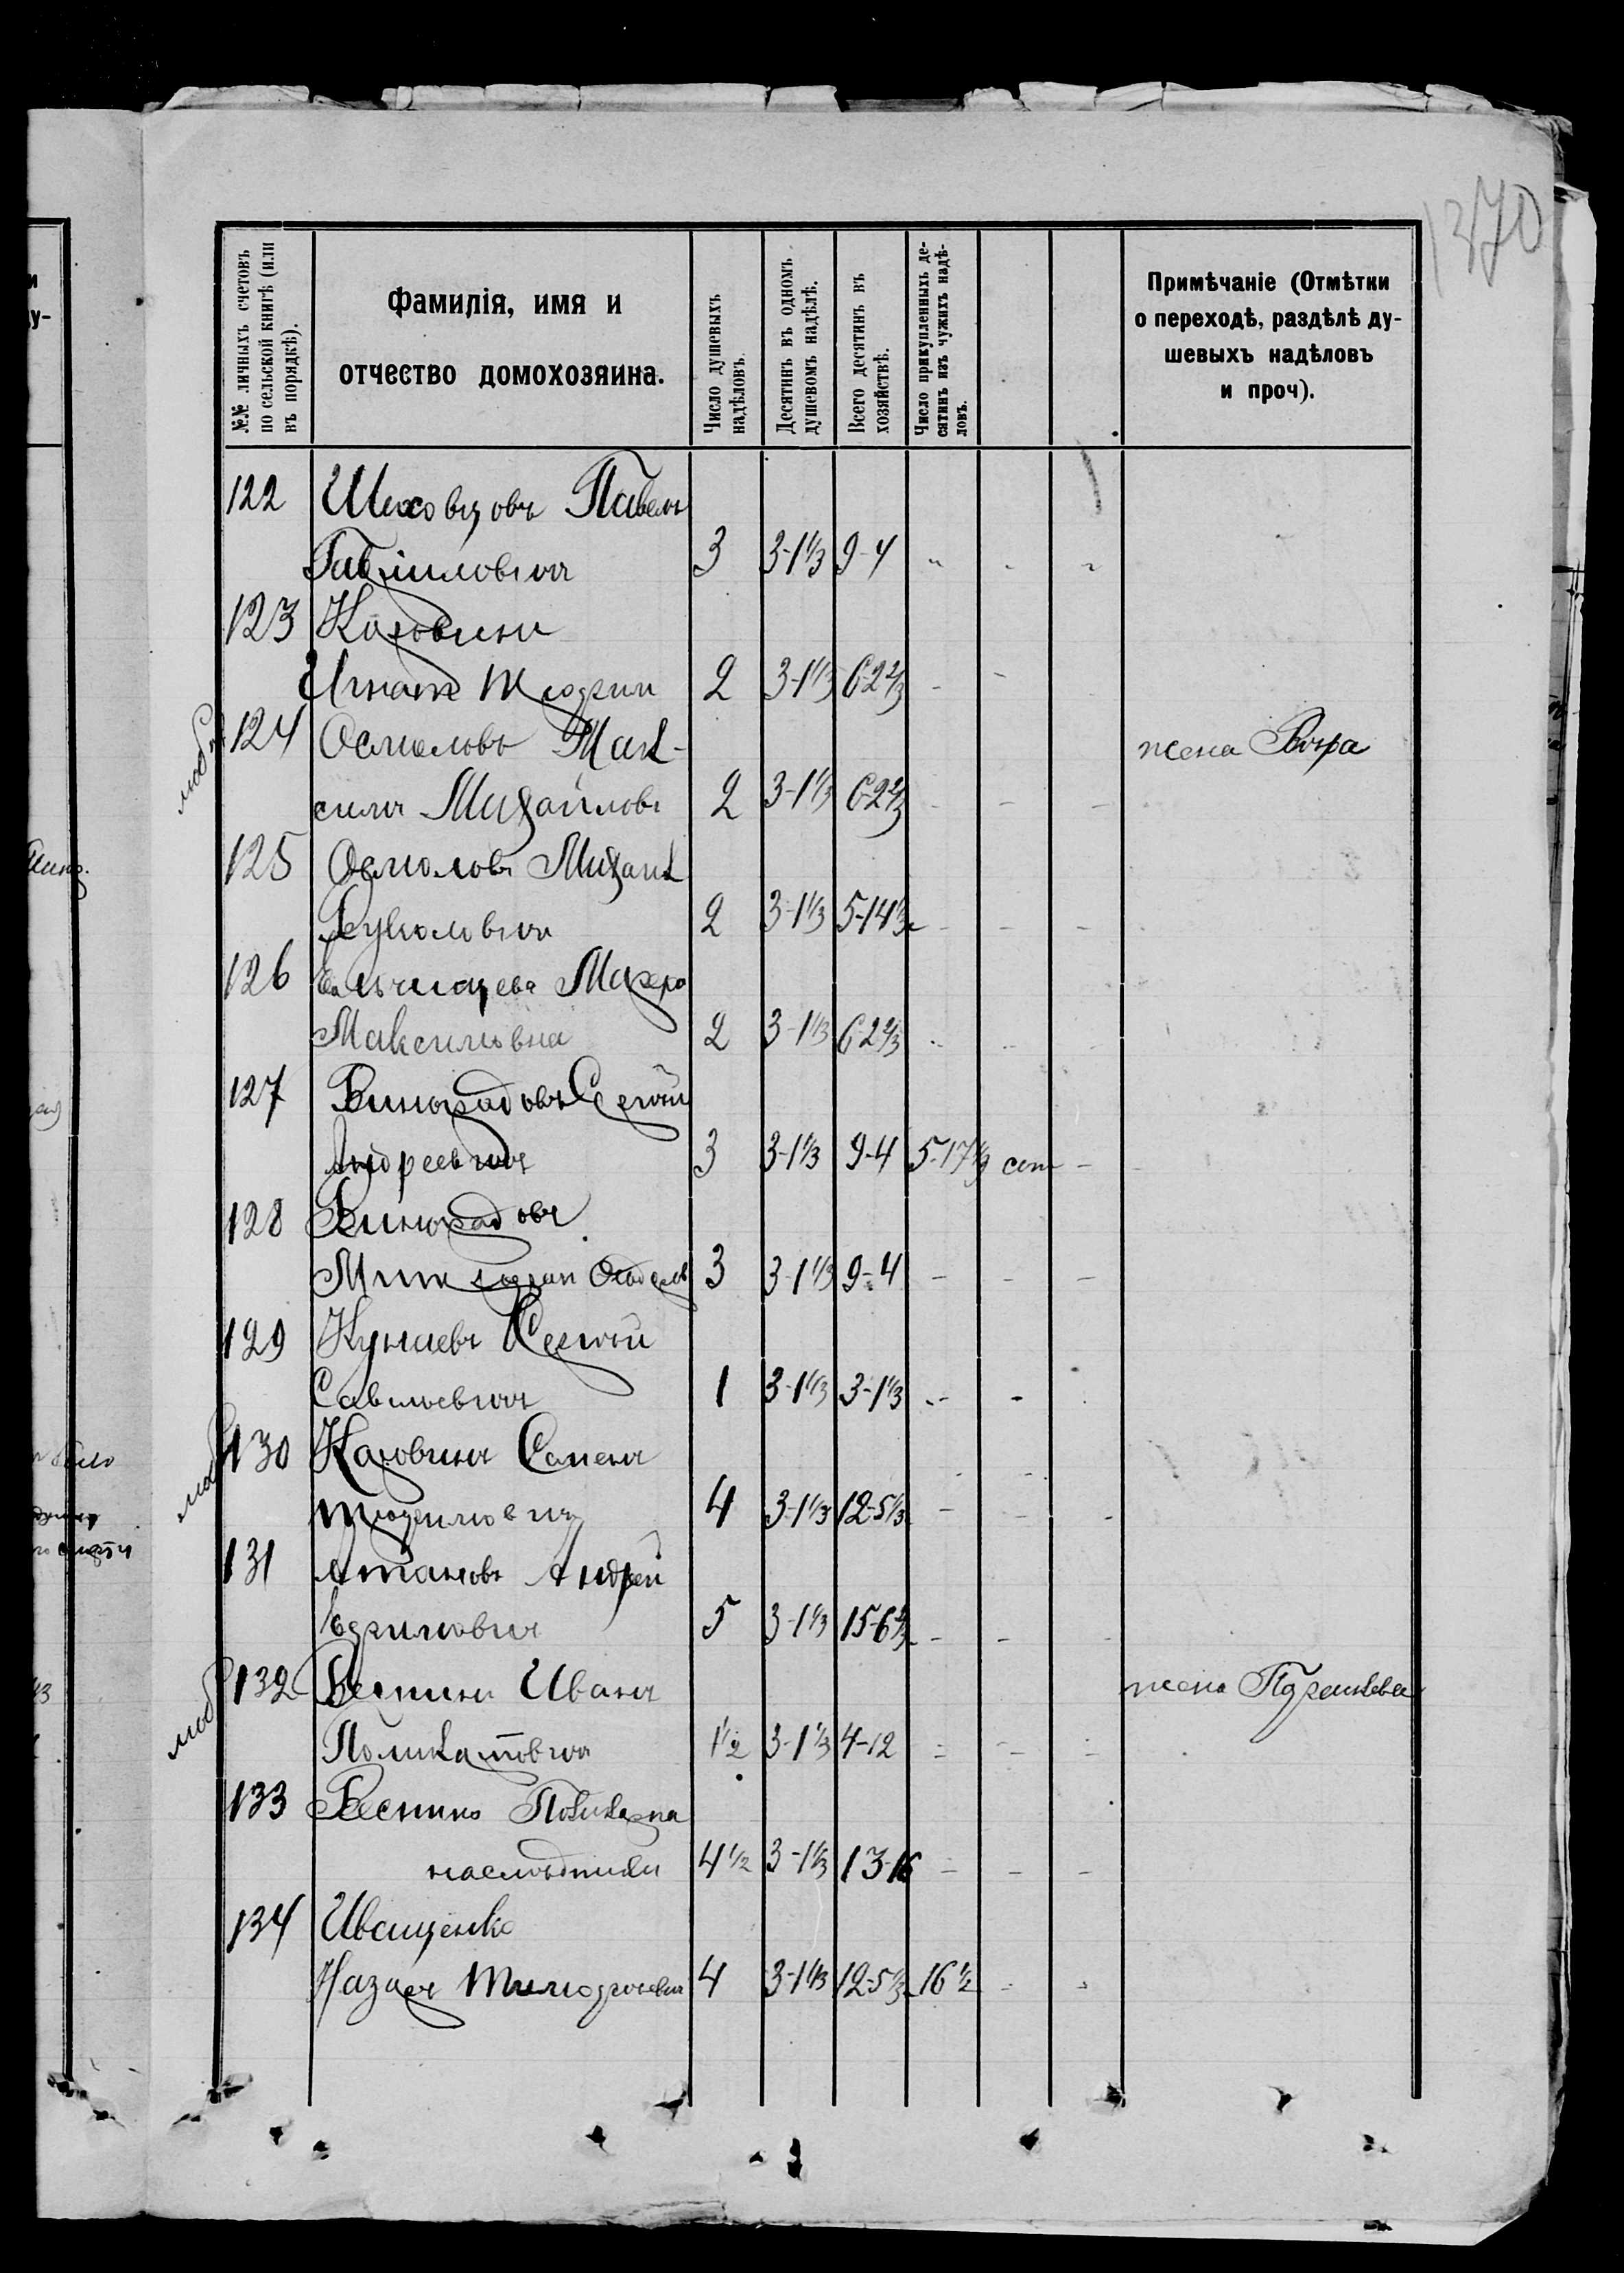 370
№№ личныхъ счетовъ по сельской книгѣ (или въ порядкѣ).
Фамилія, имя и отчество домохозяина.
Число душевыхъ надѣловъ.
Десятинъ въ одномъ душевомъ надѣлѣ.
Всего десятинъ въ хозяйствѣ.
Число прикупленныхъ десятинъ изъ чужихъ надѣловъ.
Примѣчаніе (Отмѣтки о переходѣ, раздѣлѣ душевыхъ надѣловъ и проч).
122 Шиховцовъ Павелъ
Гавріиловичъ 3 3-1⅓ 9-4
123 Каровинъ
Игнатъ 2 3-1⅓ 6-2⅔ - -
124 Осмоловъ Мак- жена Вѣра
симъ Михайловъ 2 3-1⅓ 6-2⅔ - - -
125 Осмоловъ Михаилъ
2 3-1⅓ 5-14⅓ - - -
126 Мавра
Максимовна 2 3-1⅓ 6-2⅔
127 Виноградовъ Сергѣй
Андреевичъ 3 3-1⅓ 9-4 5-17⅓ -
128 Виноградовъ
3 3-1⅓ 9-4 - - -
129 Кунаевъ Сергѣй
Савельевичъ 1 3-1⅓ 3-1⅓ - -
моб 130 Каровинъ Семенъ
4 3-1⅓ 12-5⅓ - - -
131 Атановъ Андрей
Ефимовичъ 5 3-1⅓ 15-6⅔ - - -
моб 132 Веснинъ Иванъ жена
Поликарповичъ 1½ 3-1⅓ 4-12 - - -
133 Веснина Поликарпа
наслѣдники 4½ 3-1⅓ 13-16 - - -
134 Иващенко
Назаръ Тимофеевичъ 4 3-1⅓ 12-5⅓ 16½ - -